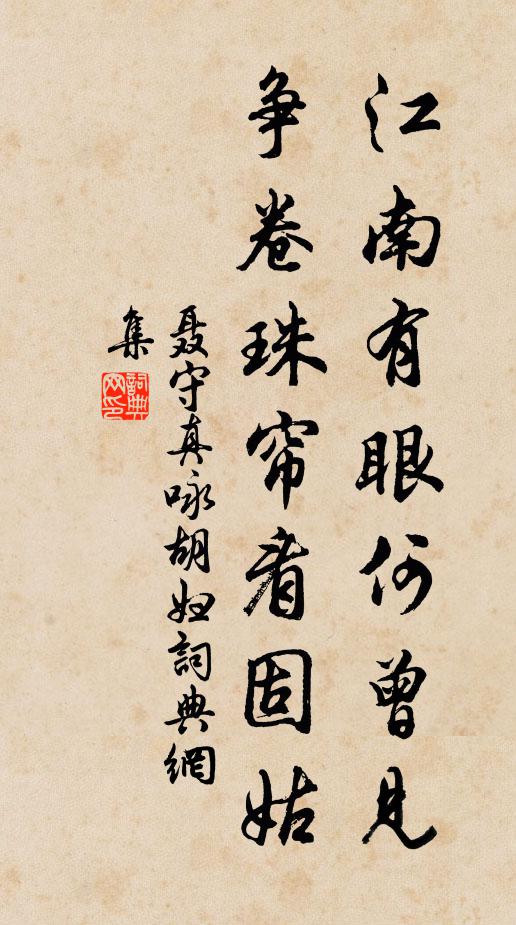 江南有眼何曾見
争卷珠帘看固姑
聂守真咏胡妇詞典網
集
詞典
网印